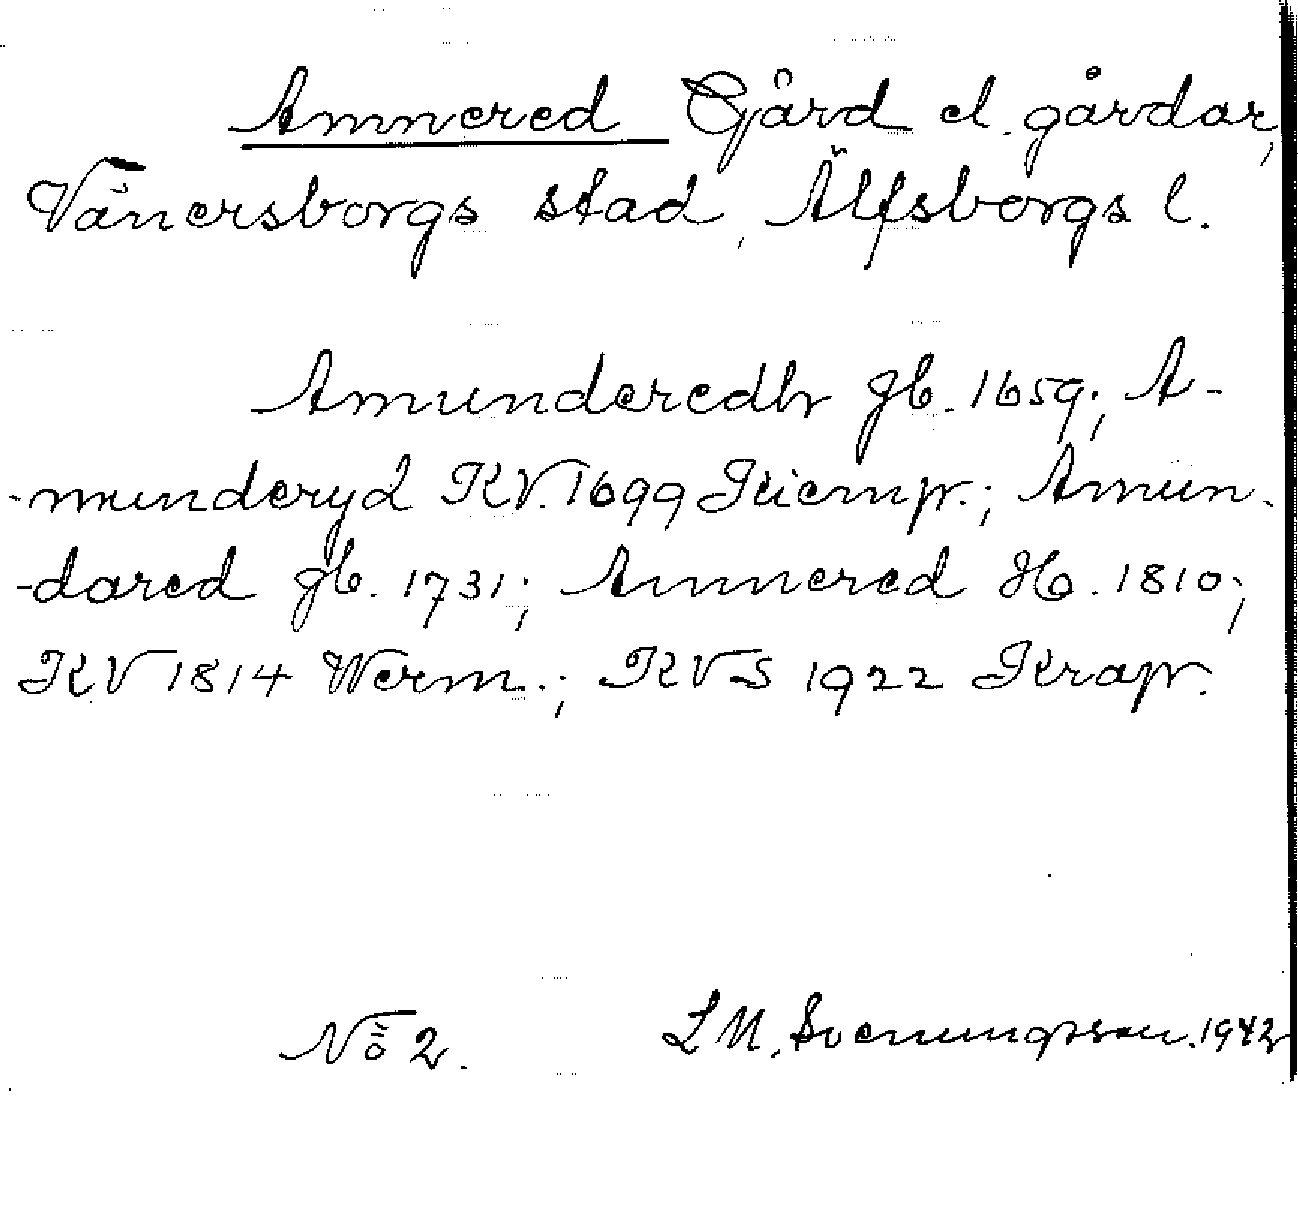 Amnered Gård el. gårdar,
Vänersborgs stad, Älfsborgs l.
Amunderedh gb. 1659; A-
-munderyd KV. 1699 Kiemp.; Amun-
-dared gb. 1731; Amnered Hb. 1810;
KV 1814 Werm.; KVS 1922 Krap.
No 2. L M. Svenungsson. 1942